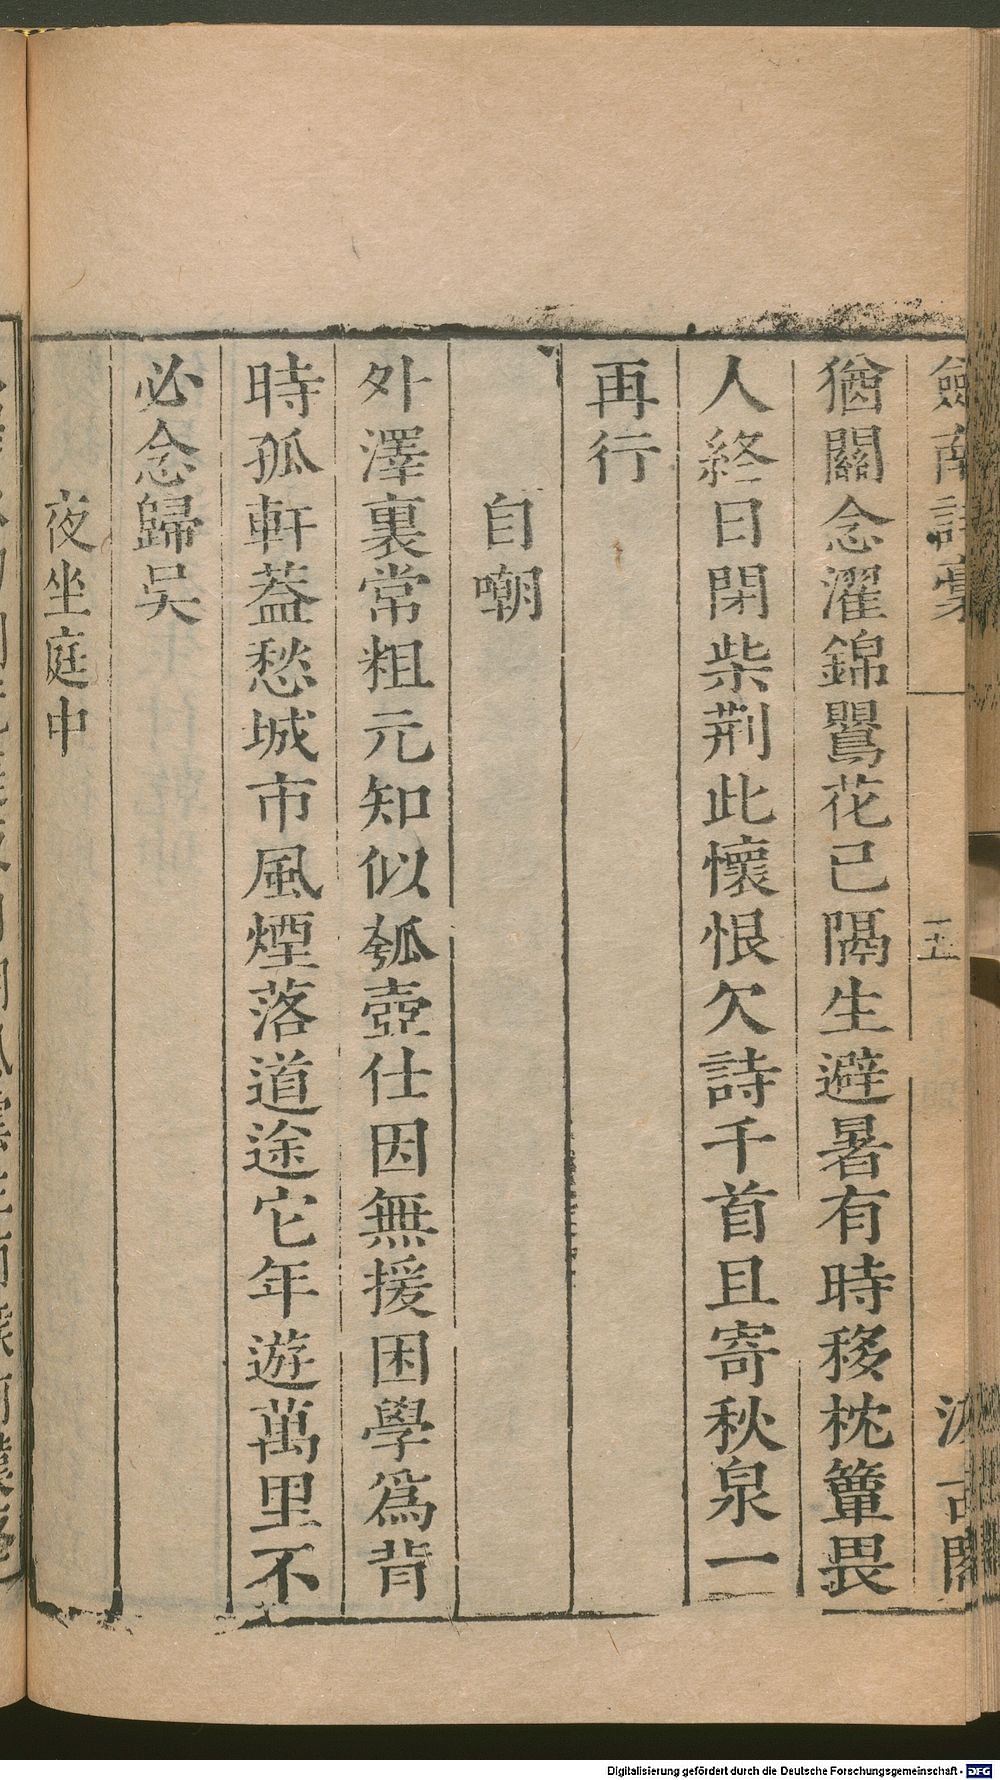 劍南詩稾
五
汲古閣
猶關念濯錦鸎花已隔生避暑有時移枕簟畏
人終日閉柴荆此懷恨欠詩千首且寄秋泉一
再行
自嘲
外澤裏常粗元知似瓠壺仕因無援困學爲背
時孤軒葢愁城市風煙落道途它年遊萬里不
必念歸吳
夜坐庭中
Digitalisierung gefördert durch die Deutsche Forschungsgemeinschaft - DFG